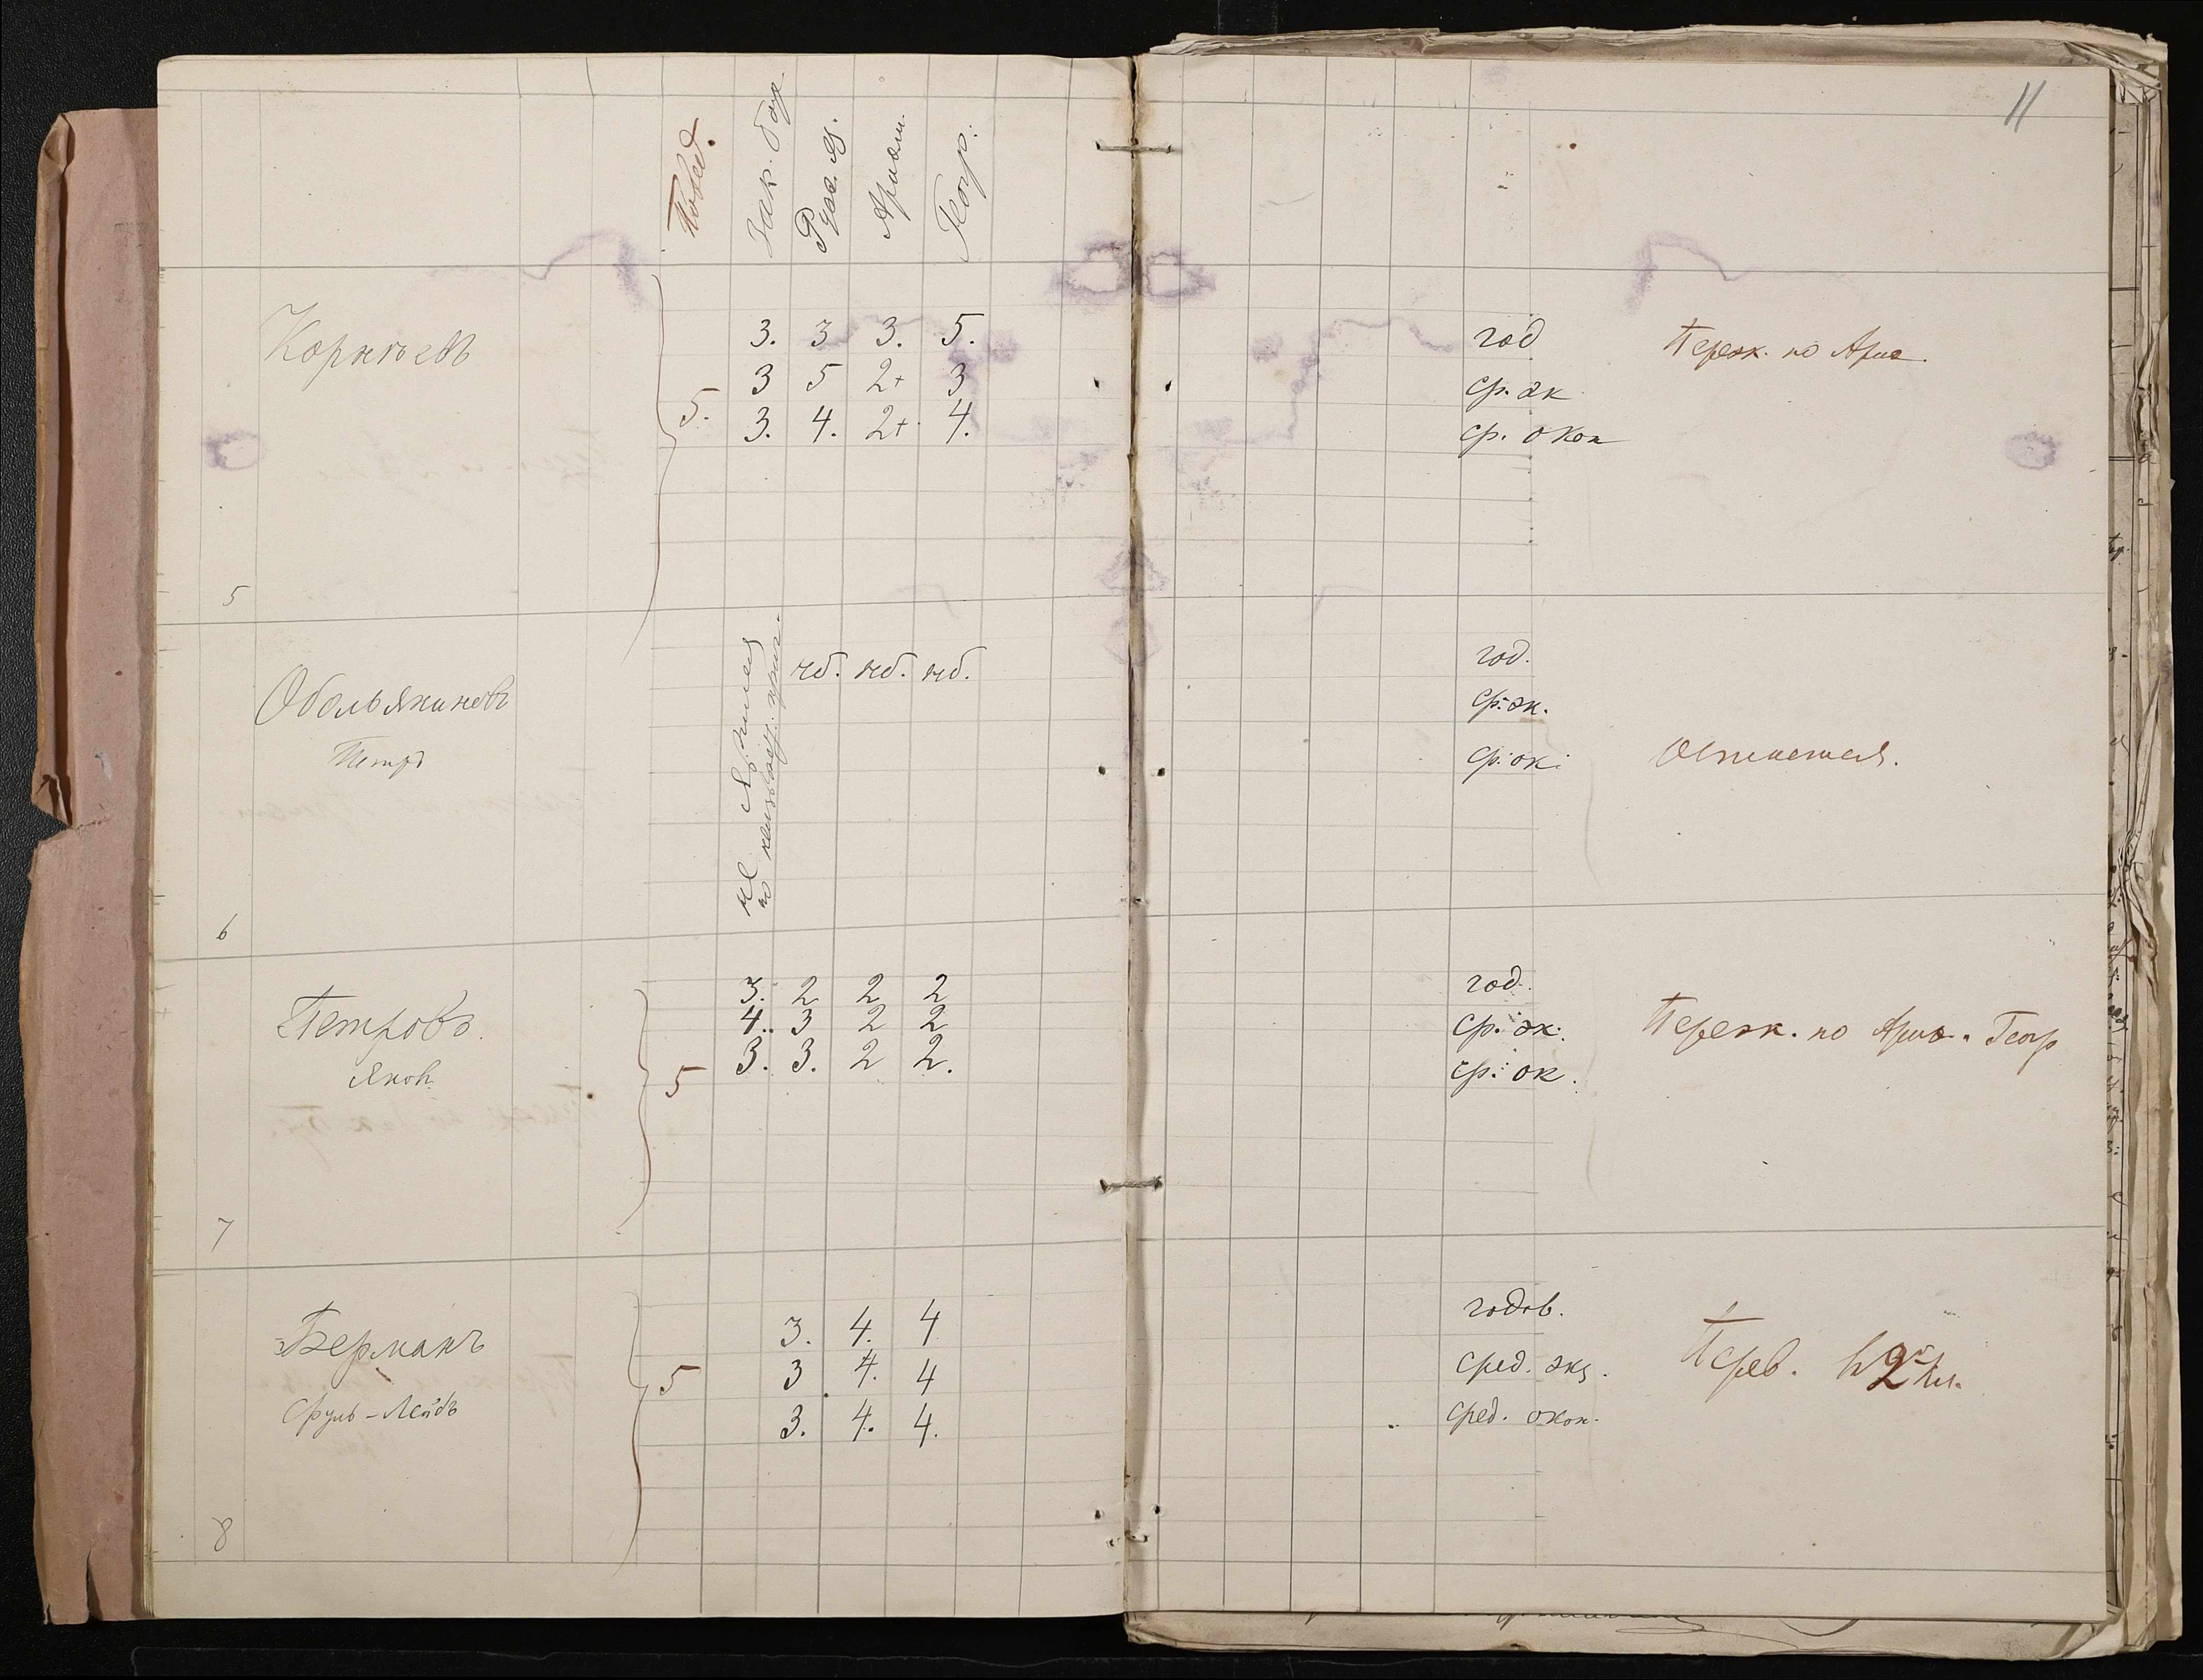 11
Повед.
Зак. бож.
Русс. яз.
Арифм.
Геогр.
Корнѣевъ
3. 3 3. 5. год
3 5 2+ 3 ср. эк
5. 3. 4. 2+ 4. ср. окон
Переэк. по Ариѳ.
5
Обольяниновъ
Петръ
не явился
по
нб. нб. нб. год.
ср. эк.
ср. ок.
Остается.
6
Петровъ.
Яковъ
3. 2 2 2 год.
4. 3 2 2 ср. эк.
5 3. 3. 2 2. ср. ок.
Переэк. по Ариѳ. Геогр
7
Берманъ
Сруль-Лейбъ
3. 4. 4 годов.
5 3 4. 4 сред. экз.
3. 4. 4. сред. окон.
Перев. въ 2й кл.
8